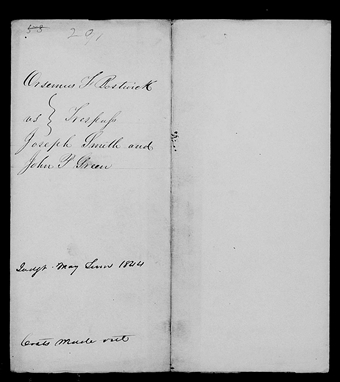 53 201
Orsemus F Bostwick
vs } Trespass
Joseph Smith and
John P Green
Judgt. May Term 1844
Costs Made out